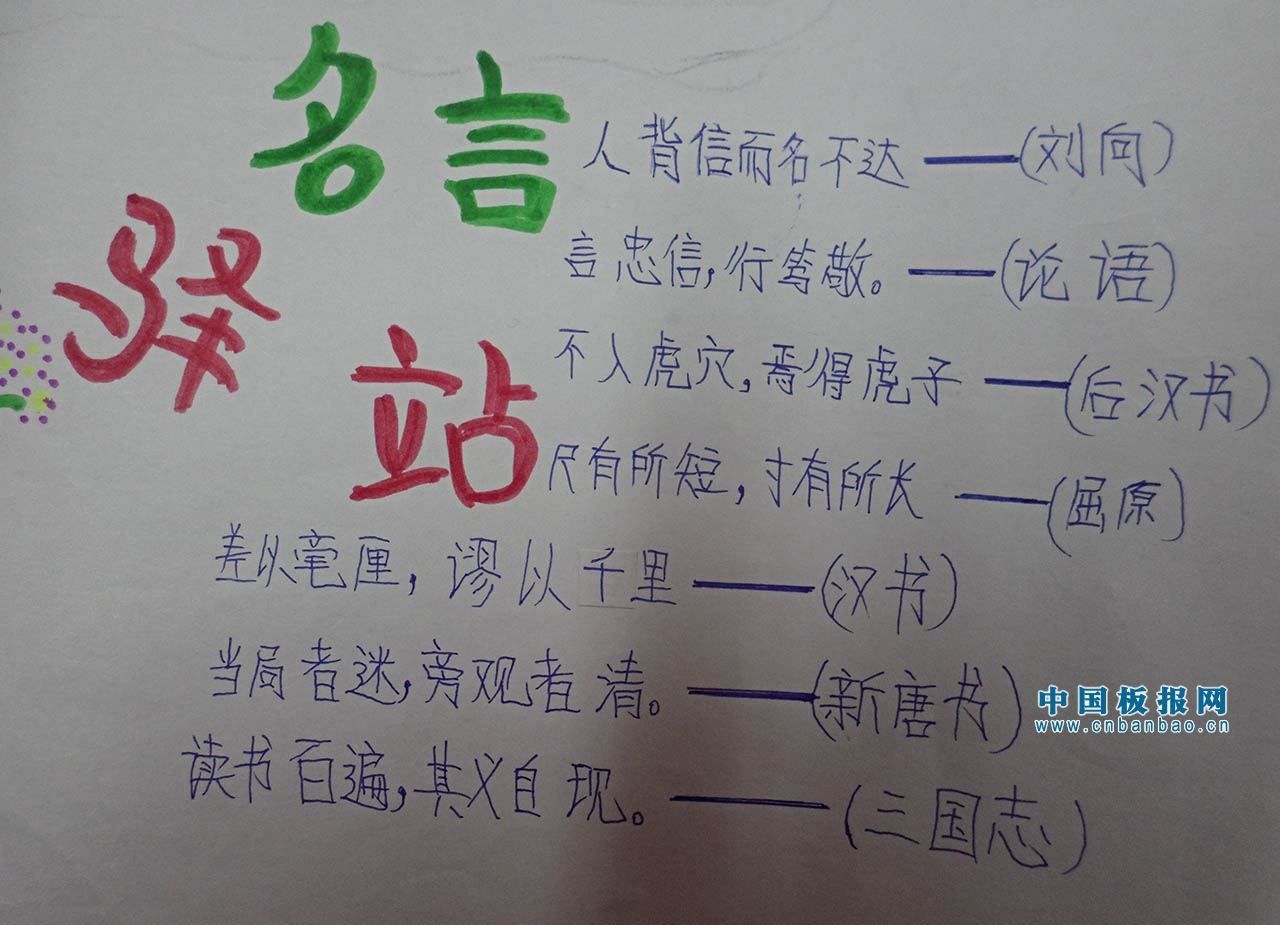 名言
驿站
人背信而名不达——(刘向)
言忠信,行笃敬。——(论语)
不入虎穴,焉得虎子——(后汉书)
尺有所短,寸有所长——(屈原)
差以毫厘,谬以千里——(汉书)
当局者迷,旁观者清。——(新唐书)
读书百遍,其义自现。——(三国志)
中国板报网
www.cnbanbao.cn